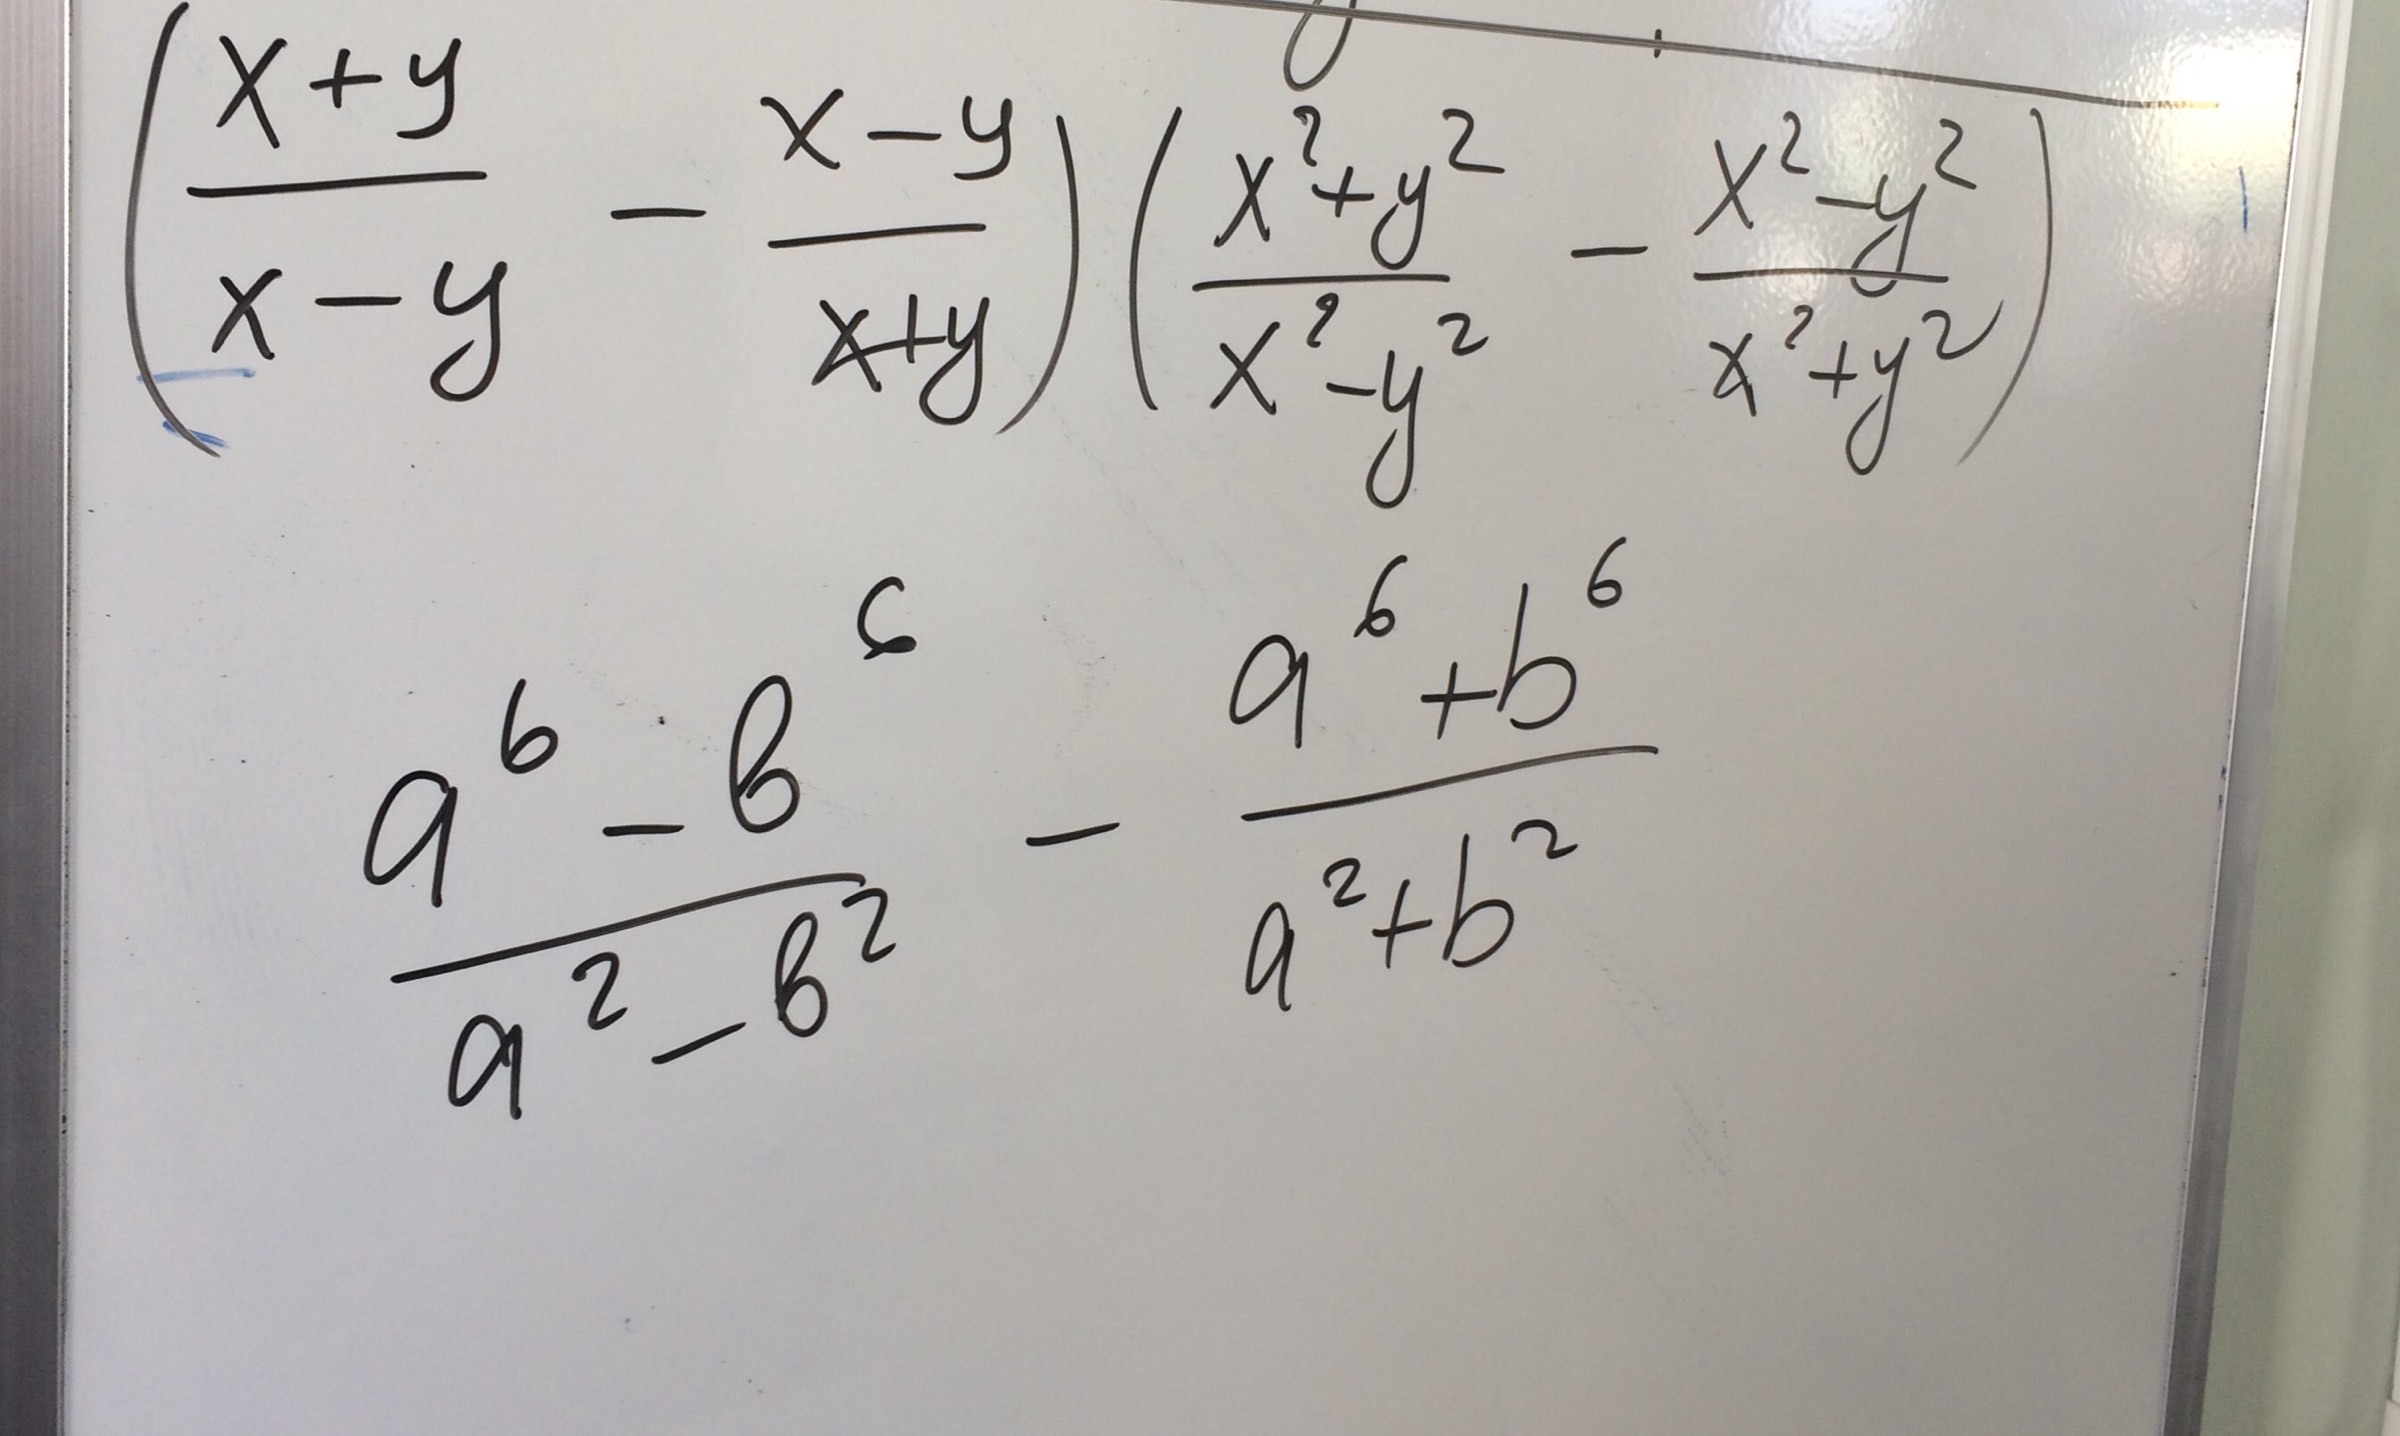 (x+y/x-y - x-y/x+y)(x²+y²/x²-y² - x²-y²/x²+y²)
a⁶-b⁶/a²-b² - a⁶+b⁶/a²+b²